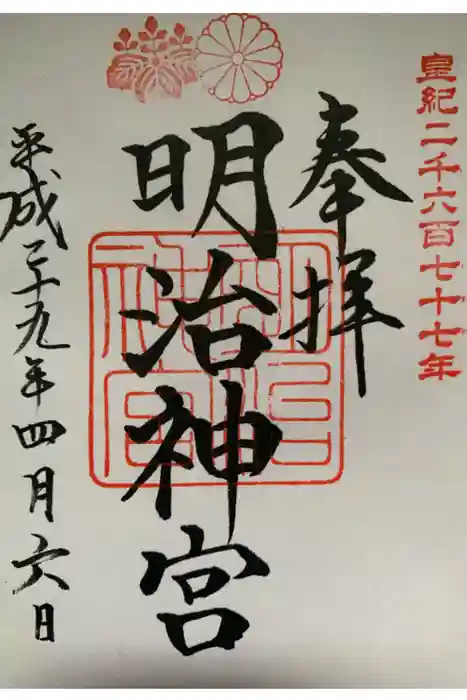 皇紀二千六百七十七年
奉拝
明治神宮
平成二十九年四月六日
明治神宮